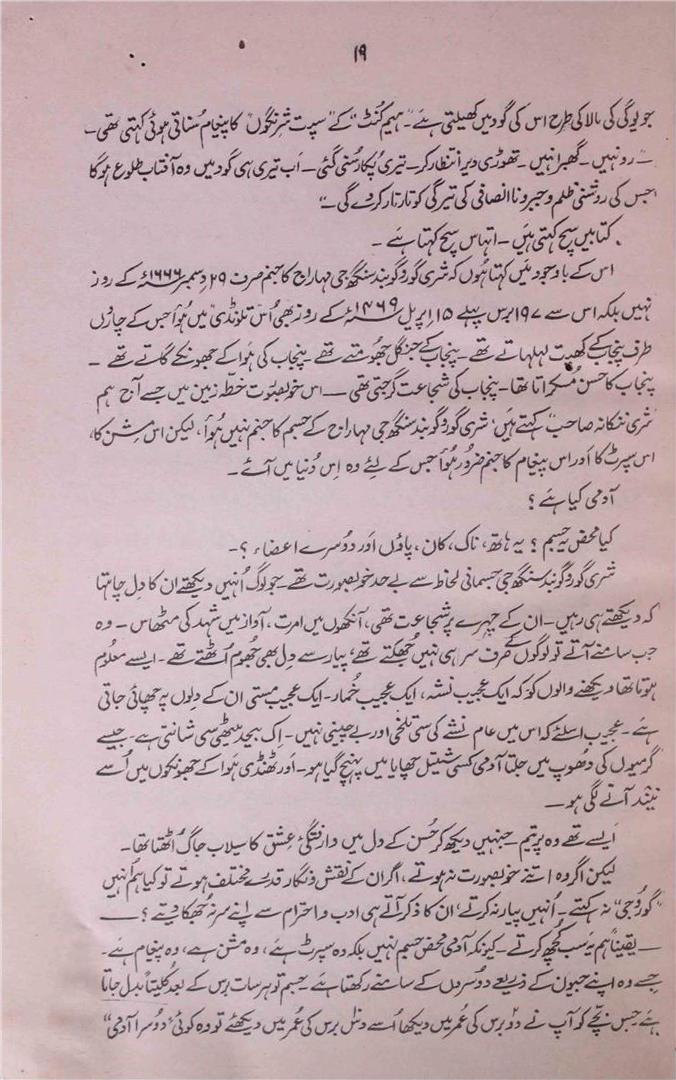 ۱۹
جو یوگی کی مالا کی طرح اس کی گود میں کھیلتی ہے۔ ”ہیم کُنٹ“ کے ”سپت شرنگوں“ کا پیغام سُناتی ہوئی کہتی تھی۔
”۔ رو نہیں۔ گھبرا نہیں۔ تھوڑی دیر انتظار کر۔ تیری پُکار سُنی گئی۔ اَب تیری ہی گود میں وہ آفتاب طلوع ہو گا
جس کی روشنی ظلم و جبر و ناانصافی کی تیرگی کو تار تار کر دے گی۔“
کتابیں سچ کہتی ہیں۔ اتہاس سچ کہتا ہے۔
اس کے باوجود میں کہتا ہُوں کہ شری گورو گوبند سنگھ جی مہاراج کا جنم صرف ۲۹ دسمبر ۱۶۶۶ء کے روز
نہیں بلکہ اس سے ۱۹۷ برس پہلے ۱۵ اپریل ۱۴۶۹ء کے روز بھی اُس تلونڈی میں ہُوا جس کے چاروں
طرف پنجاب کے کھیت لہلہاتے تھے۔ پنجاب کے جنگل جھومتے تھے۔ پنجاب کی ہَوا کے جھونکے گاتے تھے۔
پنجاب کا حسن مُسکراتا تھا۔ پنجاب کی شجاعت گرجتی تھی — اس خوبصُورت خطّہ زمین میں جسے آج ہم
”شری ننکانہ صاحب“ کہتے ہَیں، شری گورو گوبند سنگھ جی مہاراج کے جسم کا جنم نہیں ہُوا، لیکن اس مِشن کا،
اس سپرٹ کا اَور اس پیغام کا جنم ضرور ہُوا جس کے لئے وہ اِس دُنیا میں آئے۔
آدمی کیا ہَے؟
کیا محض یہ جسم؟ یہ ہاتھ، ناک، کان، پاؤں اَور دوسرے اعضاء؟۔
شری گورو گوبند سنگھ جی جسمانی لحاظ سے بے حد خوبصورت تھے۔ جو لوگ اُنہیں دیکھتے ان کا دِل چاہتا
کہ دیکھتے ہی رہیں۔ ان کے چہرے پر شجاعت تھی، آنکھوں میں امرت، آواز میں شہد کی مٹھاس۔ وہ
جب سامنے آتے تو لوگوں کے صرف سر ہی نہیں جُھکتے تھے، پیار سے دِل بھی جُھوم اُٹھتے تھے۔ ایسے معلُوم
ہوتا تھا دیکھنے والوں کو کہ ایک عجیب نشہ، ایک عجیب خُمار۔ ایک عجیب مستی ان کے دِلوں پہ چھائی جاتی
ہے۔ عجیب اسلئے کہ اس میں عام نشے کی سی تلخی اور بے چینی نہیں۔ اِک بیحد میٹھی سی شانتی ہے۔ جیسے
گرمیوں کی دھُوپ میں جلتا آدمی کسی شیتل چھایا میں پہنچ گیا ہو۔ اَور ٹھنڈی ہَوا کے جھونکوں میں اُسے
نیند آنے لگی ہو۔
اَیسے تھے وہ پریتم۔ جنہیں دیکھ کر حُسن کے دل میں وارفتگیٔ عِشق کا سیلاب جاگ اُٹھتا تھا۔
لیکن اگر وہ اتنے خوبصورت نہ ہوتے، اگر ان کے نقش و نگار قدرے مختلف ہوتے تو کیا ہم اُنہیں
”گورُوجی“ نہ کہتے۔ اُنہیں پیار نہ کرتے، ان کا ذکر آتے ہی ادب و احترام سے اپنے سر نہ جُھکا دیتے؟۔—
— یقیناً ہم یہ سَب کُچھ کرتے۔ کیونکہ آدمی محض جسم نہیں بلکہ وہ سپرٹ ہَے، وہ مشن ہے، وہ پیغام ہَے۔
جِسے وہ اپنے جیون کے ذریعے دُوسروں کے سامنے رکھتا ہَے جسم تو ہر سات برس کے بعد کُلیتاً بدل جاتا
ہَے جِس بچّے کو آپ نے دو برس کی عُمر میں دیکھا اُسے دس برس کی عُمر میں دیکھئے تو وہ کوئی ”دُوسرا آدمی“